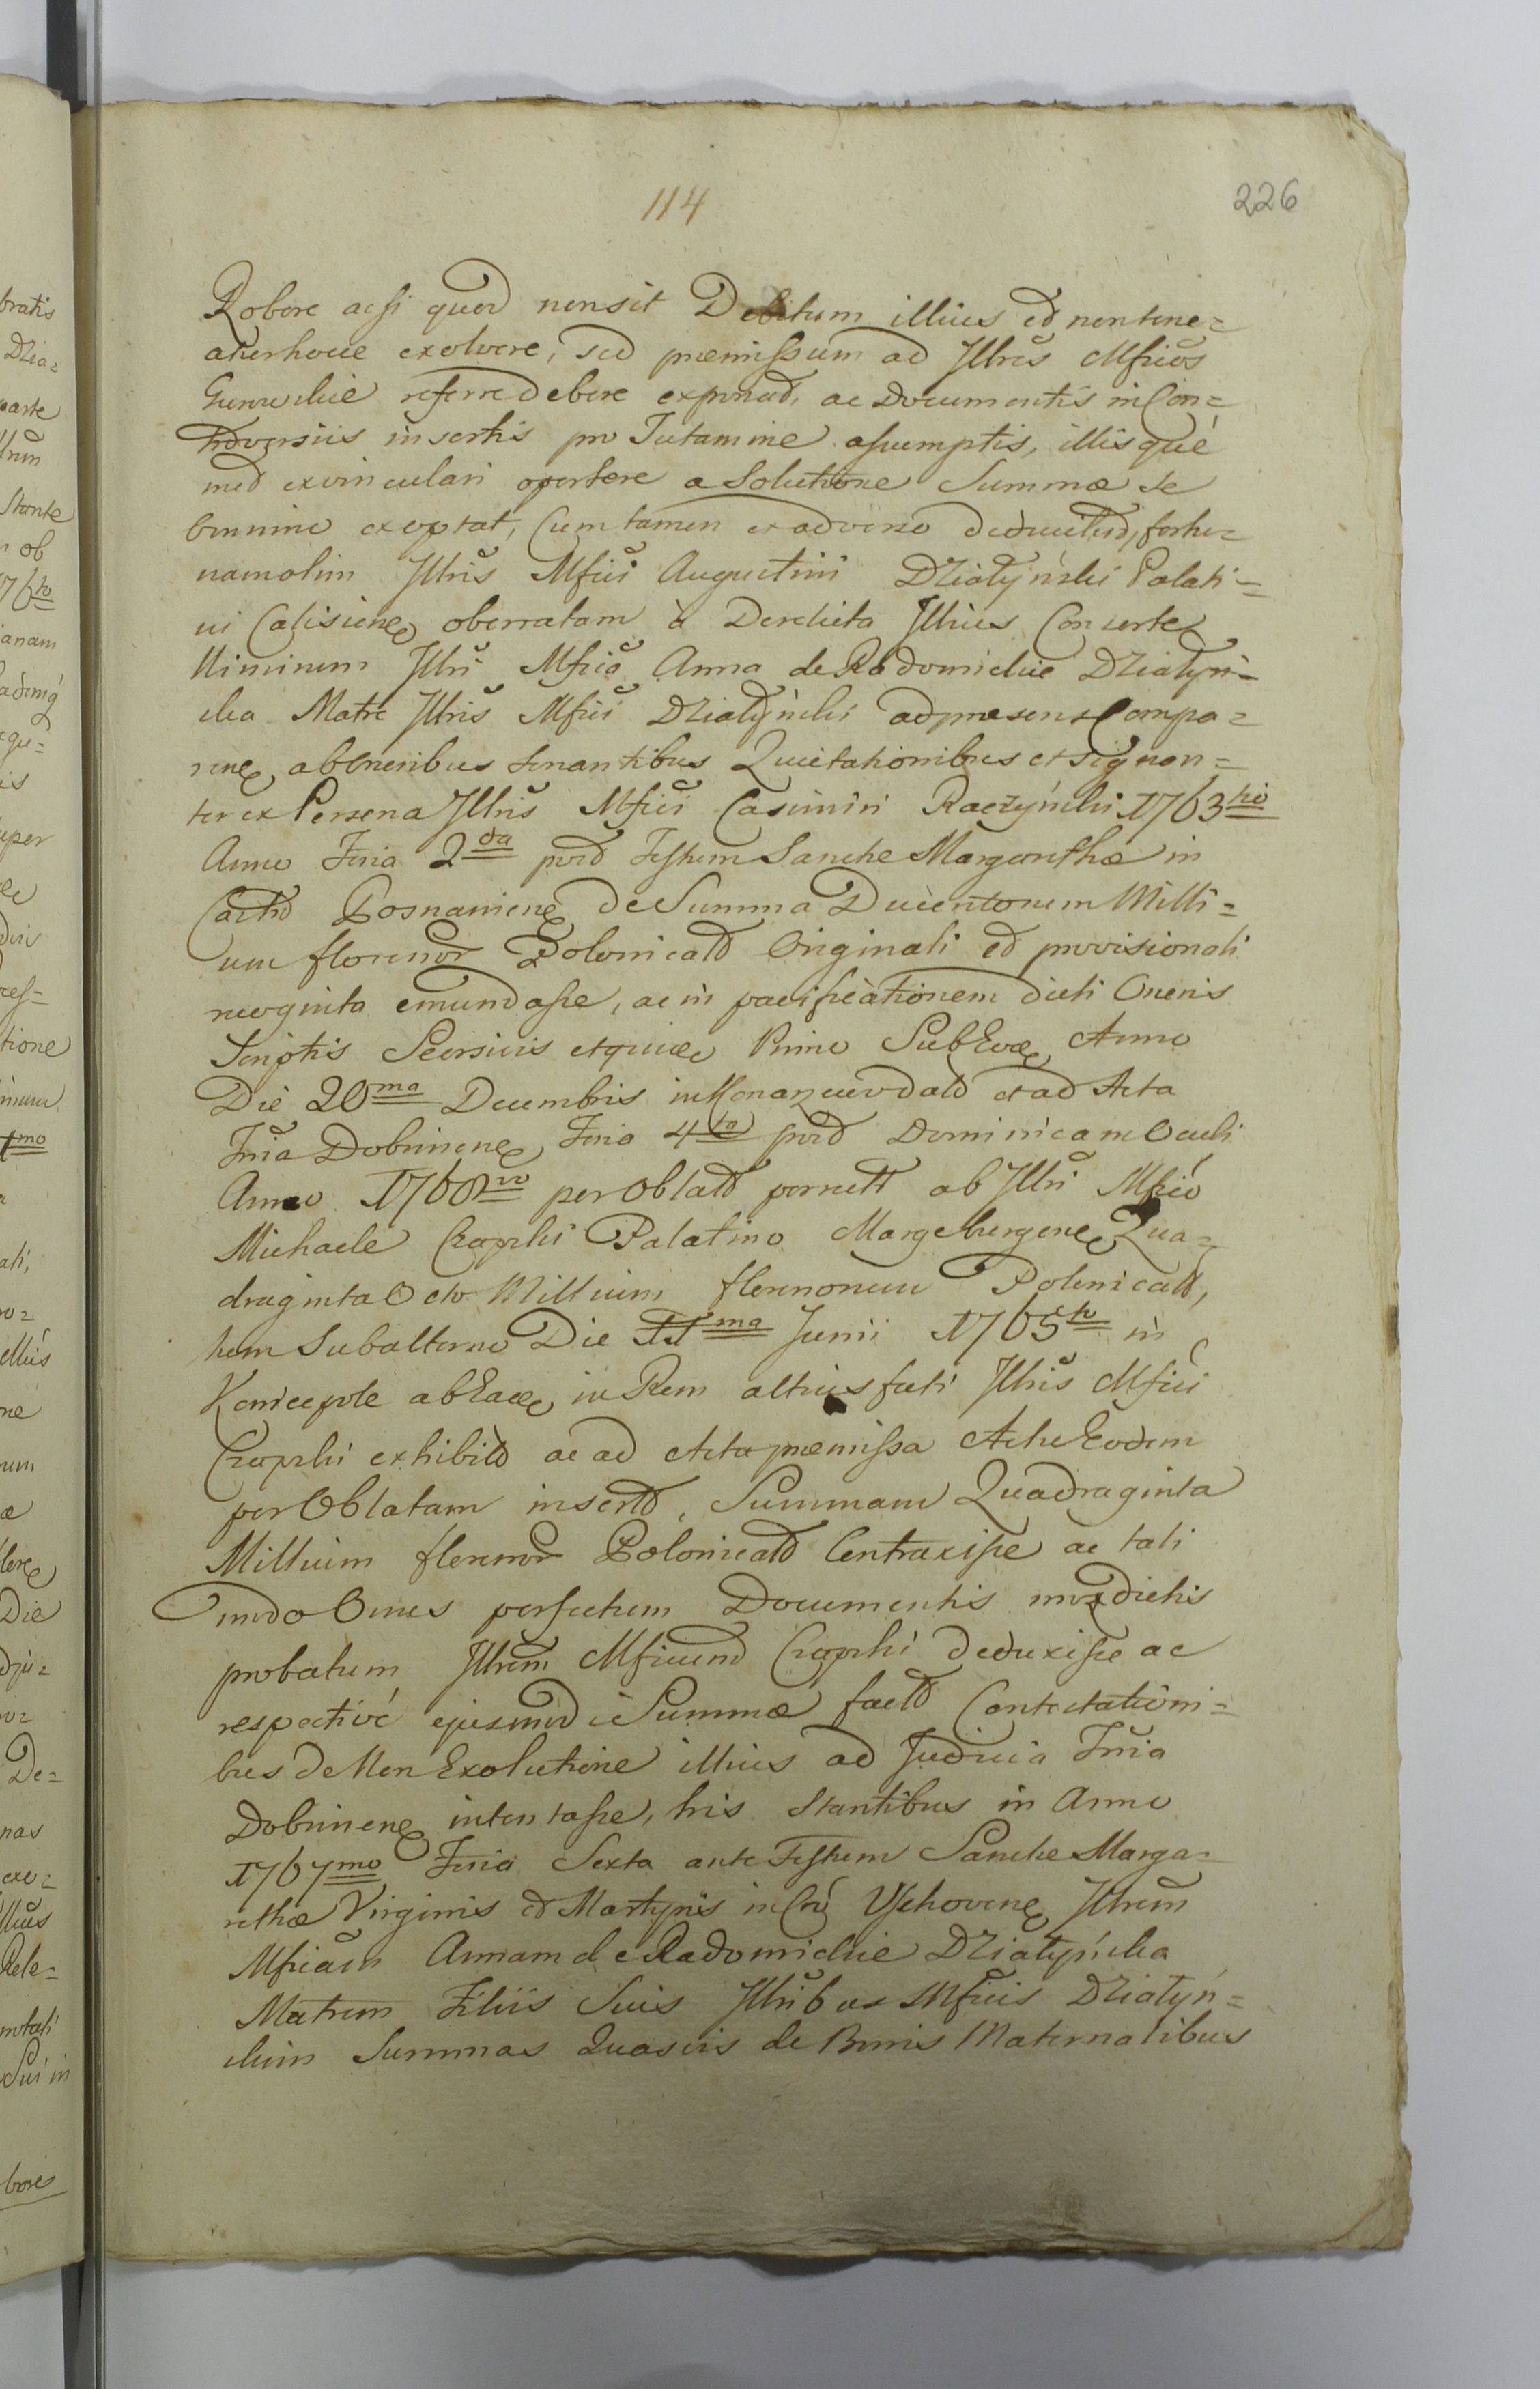 114
226
Robore acsi quod non sit Debitum illius et non tene=
exolvere, sed præmissum ad Illres Mficos
referre debere ac Documentis in Con=
insertis pro Tutamine assumptis, illisque
exvinculari oportere a Solutione Summæ se
exoptat, Cum tamen ex adverso fortu=
nam olim Illris Mfici Augustini Działyński Palati=
ni Calisiens oberratam à Derelicta Illius Consorte
Illri Mfica Anna de Radomickie Działyń=
ska Matre Illris Mfici Działyński ad præsens Compa=
rens, ab Oneribus Quietationibus et signan=
ter ex Persona Illris Mfici Casimiri Raczyński 1763tio
Anno Feria 2da post Festum Sanctæ Margarethæ in
Castro Posnaniens de Summa Ducentorum Milli=
um florenor Polonicald Originali et provisionali
recognita emundasse, ac in pacificationem dicti Oneris
Scriptis Seorsivis Primo Sub Anno
Die 20ma Decembris et ad Acta
Dobrinens Feria 4ta post Dominicam Oculi
Anno per Oblatd porrectt ab Illri Mfico
Michaele Czapski Palatino Margeburgens Qua=
draginta Octo Millium florenorum Polonicald,
tum Subalterno Die 11ma Junii 1765to in
ab in Rem altius fati Illris Mfici
Czapski exhibitd ac ad Acta præmissa Actu Eodem
per Oblatam insertd, Summam Quadraginta
Millium florenor Polonicald Contraxisse ac tali
modo Onus perfectum Documentis dictis
probatum Illrem Mficum Czapski deduxisse ac
respectivè ejusmodi Summæ factd Contestationi=
bus de Non Exolutione illius ad Judicia
Dobrinens intentasse, his Stantibus in Anno
1767mo Feria Sexta ante Festum Sanctæ Marga=
rethæ Virginis et Martyris in Vschovens Illrem
Mficam Annam de Radomickie Działyńska
Matrem Filiis Suis Illribus Mficis Działyń=
skim Summas Quasvis de Bonis Maternalibus